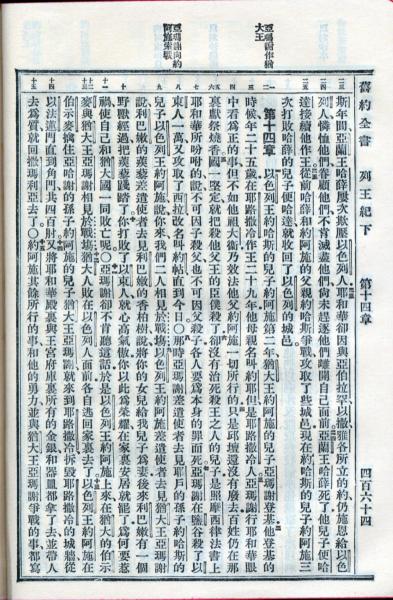 舊約全書 列王紀下 第十四章 四百六十四
斯年間亞蘭王哈薛屢次欺壓以色列人耶和華卻因與亞伯拉罕以撒雅各所立的約仍施恩給以色
列人憐恤他們眷顧他們不肯滅盡他們尚未趕逐他們離開自己面前亞蘭王哈薛死了他兒子便哈
達接續他作王從前哈薛和約阿施的父親約哈斯爭戰攻取了些城邑現在約哈斯的兒子約阿施三
次打敗哈薛的兒子便哈達就收回了以色列的城邑
亞瑪謝作猶
大王
第十四章 以色列王約哈斯的兒子約阿施第二年猶大王約阿施的兒子亞瑪謝登基他登基的
時候年二十五歲在耶路撒冷作王二十九年他母親名叫約耶但是耶路撒冷人亞瑪謝行耶和華眼
中看為正的事但不如他祖大衛乃效法他父約阿施一切所行的只是邱壇還沒有廢去百姓仍在那
裏獻祭燒香國一堅定就把殺他父王的臣僕殺了卻沒有治死殺王之人的兒子是照摩西律法書上
耶和華所吩咐的說不可因子殺父也不可因父殺子各人要為本身的罪而死亞瑪謝在鹽谷殺了以
東人一萬又攻取了西拉改名叫約帖直到今日○那時亞瑪謝差遣使者去見耶戶的孫子約哈斯的
亞瑪謝向約
阿施索戰
兒子以色列王約阿施說你來我們二人相見於戰場以色列王約阿施差遣使者去見猶大王亞瑪謝
說利巴嫩的蒺藜差遣使者去見利巴嫩的香柏樹說將你的女兒給我兒子為妻後來利巴嫩有一個
野獸經過把蒺藜踐踏了你打敗了以東人就心高氣傲你以此為榮耀在家裏安居就罷了為何要惹
禍使自己和猶大國一同敗亡呢○亞瑪謝卻不肯聽這話於是以色列王約阿施上來在猶大的伯示
麥與猶大王亞瑪謝相見於戰場猶大人敗在以色列人面前各自逃回家裏去了以色列王約阿施在
伯示麥擒住亞哈謝的孫子約阿施的兒子猶大王亞瑪謝就來到耶路撒冷拆毀耶路撒冷的城牆從
以法蓮門直到角門共四百肘又將耶和華殿裏與王宮府庫裏所有的金銀和器皿都拿了去並帶人
去為質就回撒瑪利亞去了○約阿施其餘所行的事和他的勇力並與猶大王亞瑪謝爭戰的事都寫